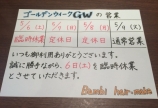 ゴールデンウィークGWの営業
5/6(土) 5/7(日) 5/8(月) 5/9(火)
臨時休業 定休日 定休日 通常営業
いつも御利用ありがとうございます。
誠に勝手ながら、6日(土)も臨時休業
とさせていただきます。
Bambi hair-make